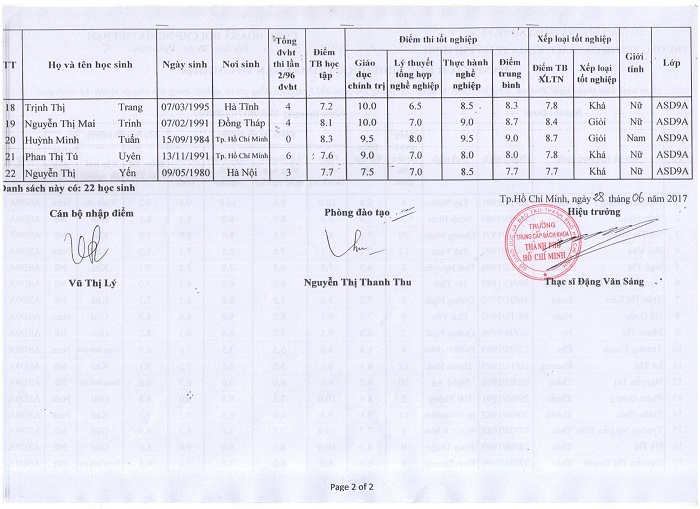 TT Họ và tên học sinh Ngày sinh Nơi sinh Tổng đvht thi lần 2/96 đvht Điểm TB học tập Điểm thi tốt nghiệp Xếp loại tốt nghiệp Giới tính Lớp
Giáo dục chính trị Lý thuyết tổng hợp nghề nghiệp Thực hành nghề nghiệp Điểm trung bình Điểm TB XLTN Xếp loại tốt nghiệp
18 Trịnh Thị Trang 07/03/1995 Hà Tĩnh 4 7.2 10.0 6.5 8.5 8.3 7.8 Khá Nữ ASD9A
19 Nguyễn Thị Mai Trinh 07/02/1991 Đồng Tháp 4 8.1 10.0 7.0 9.0 8.7 8.4 Giỏi Nữ ASD9A
20 Huỳnh Minh Tuấn 15/09/1984 Tp. Hồ Chí Minh 0 8.3 9.5 8.0 9.5 9.0 8.7 Giỏi Nam ASD9A
21 Phan Thị Tú Uyên 13/11/1991 Tp. Hồ Chí Minh 6 7.6 9.0 7.0 8.0 8.0 7.8 Khá Nữ ASD9A
22 Nguyễn Thị Yến 09/05/1980 Hà Nội 3 7.7 7.5 7.0 8.5 7.7 7.7 Khá Nữ ASD9A
Danh sách này có: 22 học sinh
Tp.Hồ Chí Minh, ngày 28 tháng 06 năm 2017
Cán bộ nhập điểm Phòng đào tạo Hiệu trưởng
TRƯỜNG
TRUNG CẤP BÁCH KHOA
THÀNH PHỐ
HỒ CHÍ MINH
Vũ Thị Lý Nguyễn Thị Thanh Thu Thạc sĩ Đặng Văn Sáng
Page 2 of 2